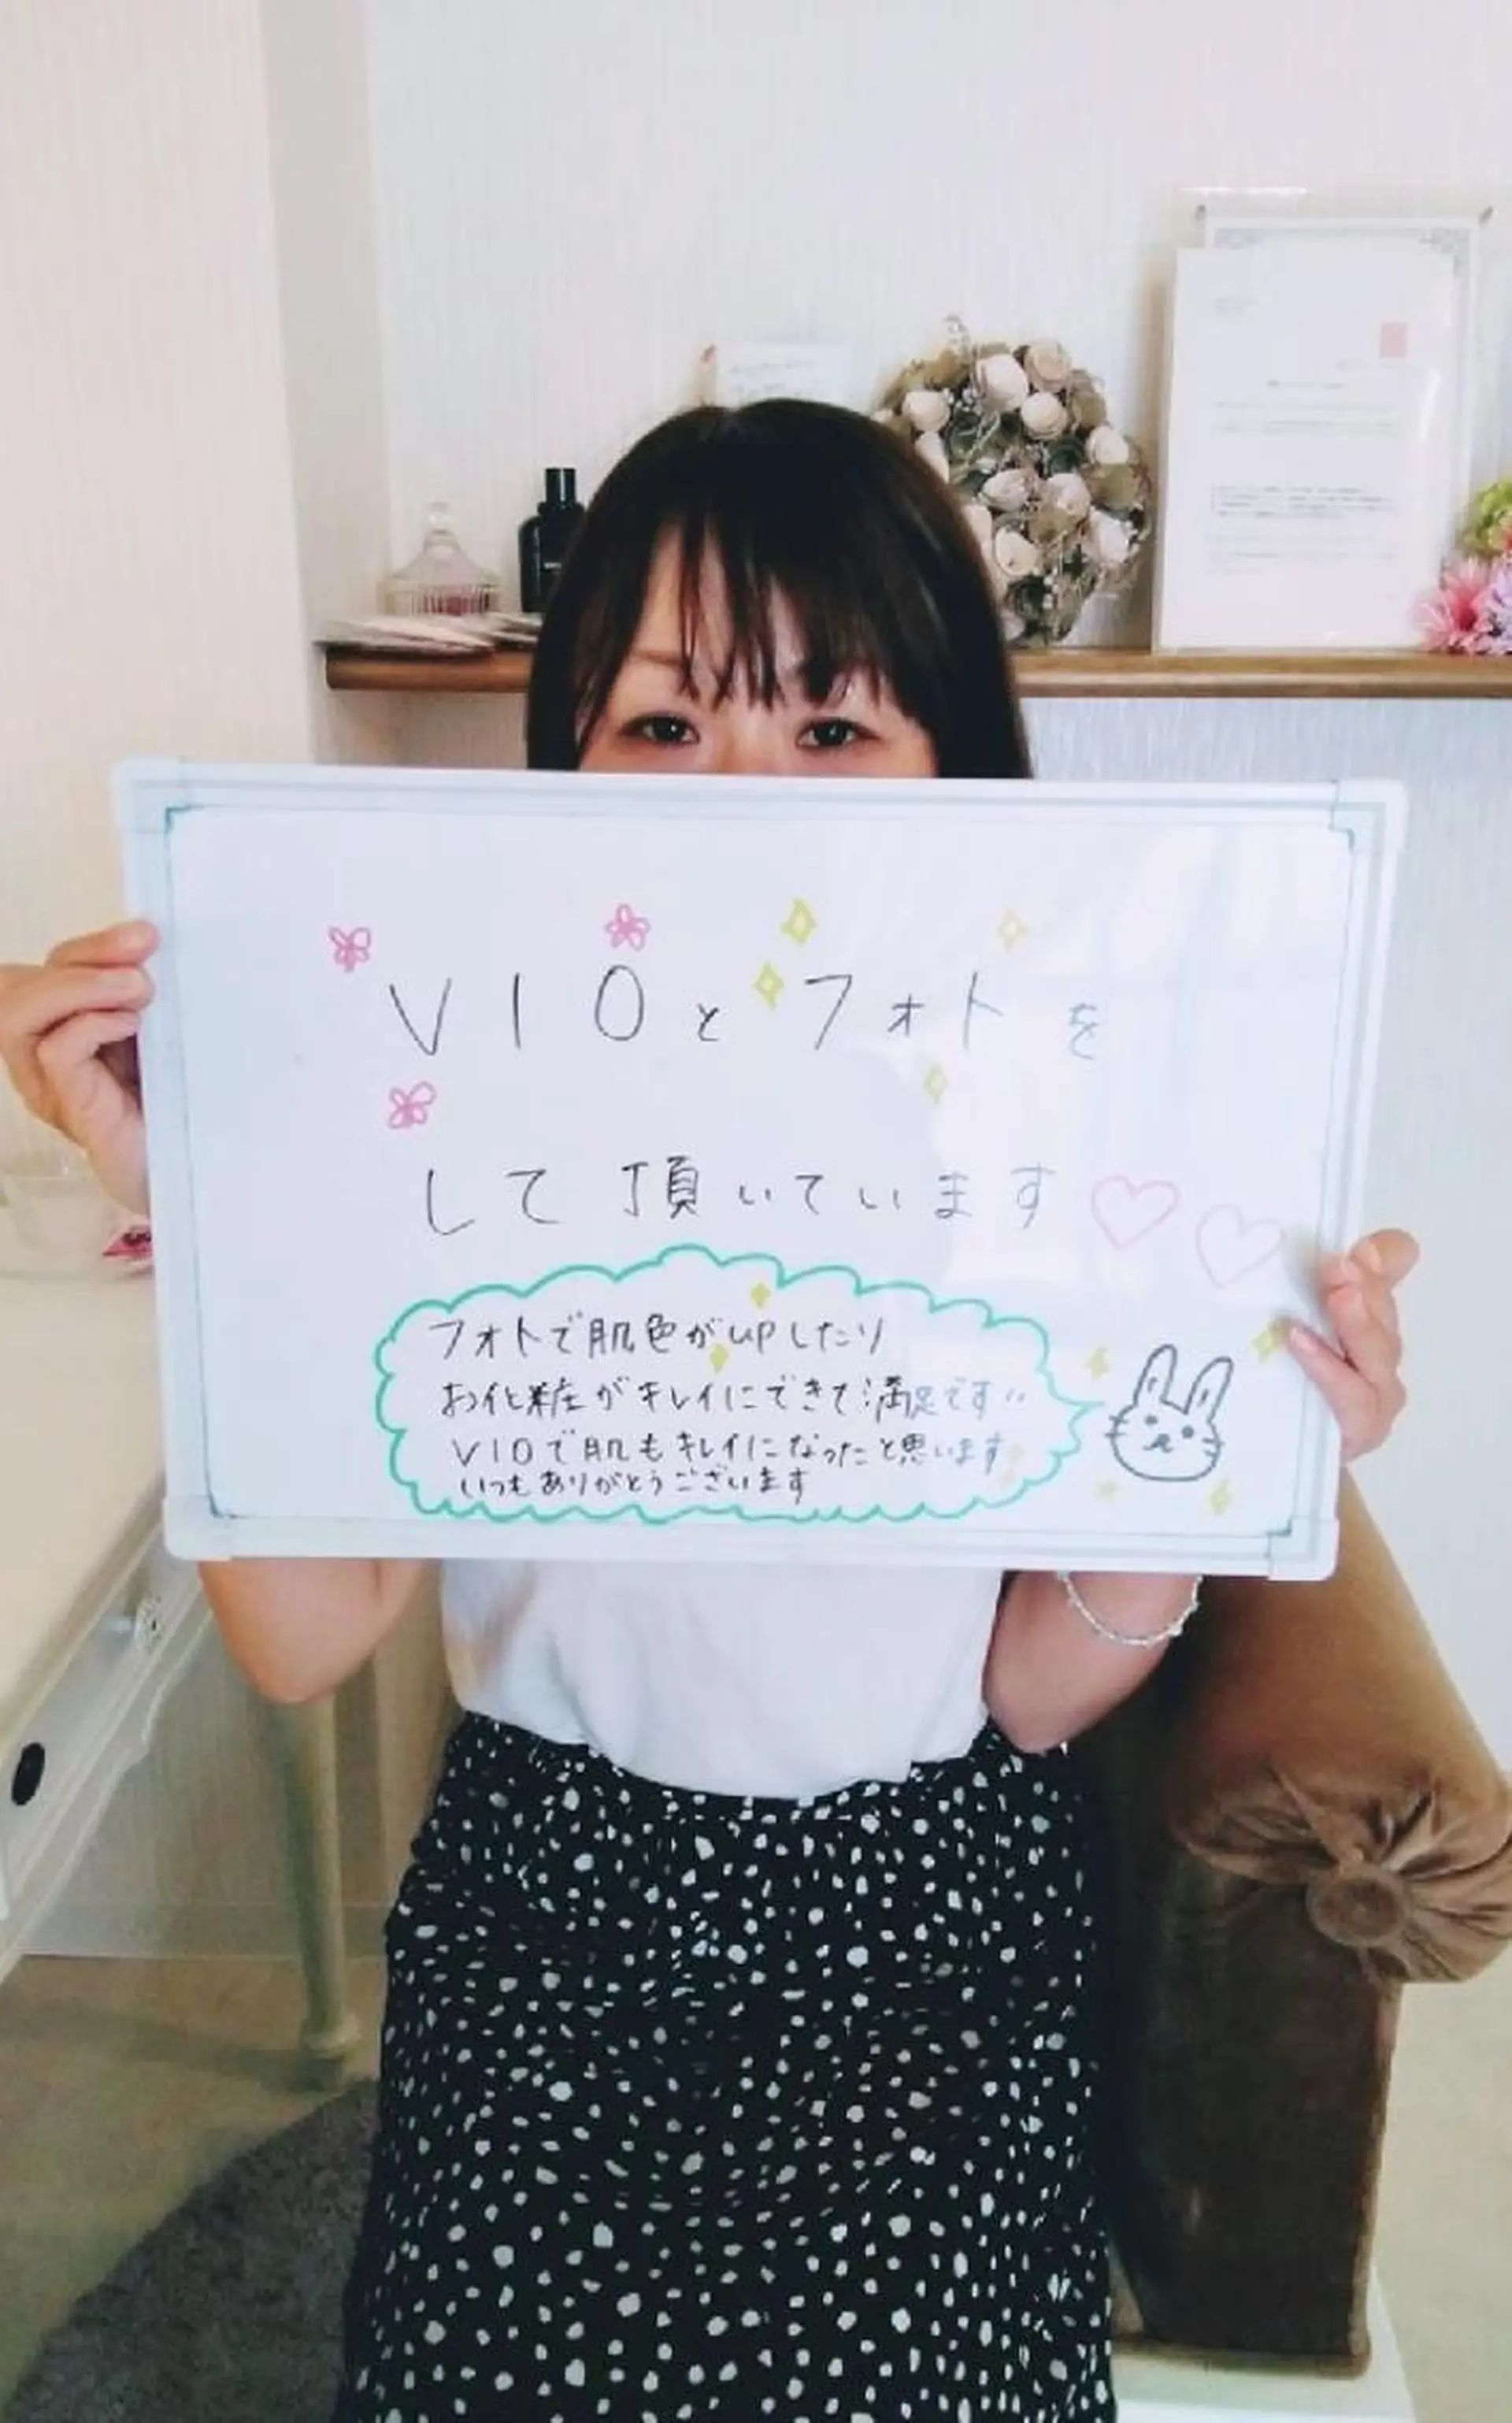 VIOとフォトを
して頂いています
フォトで肌色がupしたり
お化粧がキレイにできて満足です
VIOで肌もキレイになったと思います
いつもありがとうございます